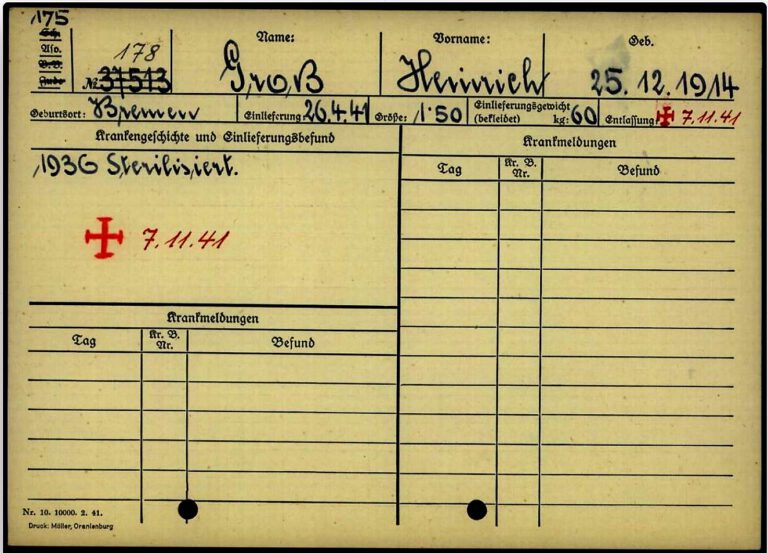 175
Sch.
Aso.
B.V.
Jude
178
№ 37513
Name:
Groß
Vorname:
Heinrich
Geb.
25. 12. 1914
Geburtsort: Bremen
Einlieferung 26.4.41
Größe: 1.50
Einlieferungsgewicht (bekleidet) kg: 60
Entlassung 7.11.41
Krankengeschichte und Einlieferungsbefund
1936 Sterilisiert.
7.11.41
Krankmeldungen
Tag Kr. B. Nr. Befund
Krankmeldungen
Tag Kr. B. Nr. Befund
Nr. 10. 10000. 2. 41.
Druck: Möller, Oranienburg